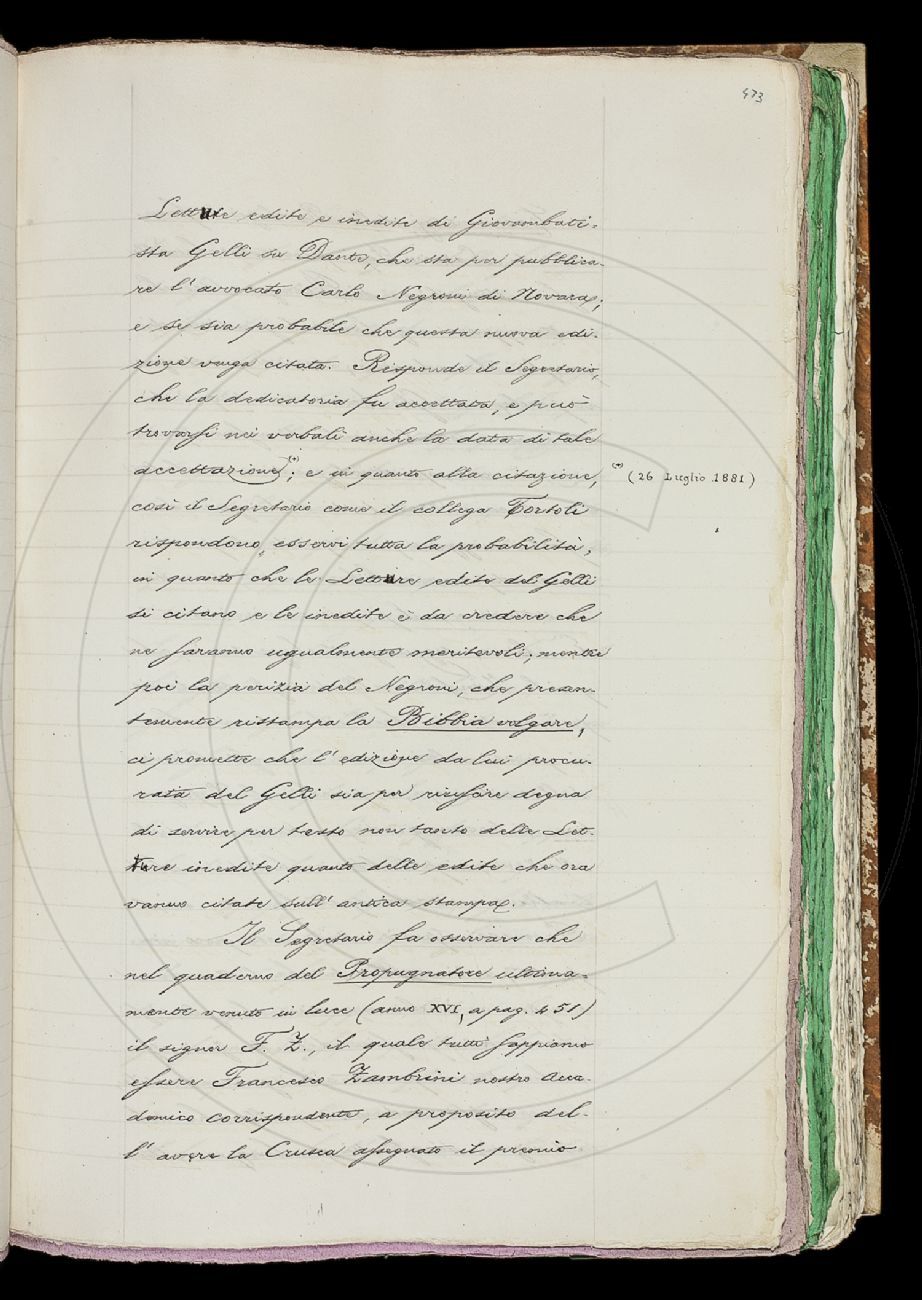 473
Letture edite e inedite di Giovambati-
sta Gelli su Dante, che sta per pubblica-
re l'avvocato Carlo Negroni di Novara;
e se sia probabile che questa nuova edi-
zione venga citata. Risponde il Segretario,
che la dedicatoria fu accettata, e può
trovarsi nei verbali anche la data di tale
accettazione (+); e in quanto alla citazione,
(+) (26 Luglio 1881)
così il Segretario come il collega Tortoli
rispondono, esservi tutta la probabilità,
in quanto che le Letture edite del Gelli
si citano e le inedite è da credere che
ne saranno ugualmente meritevoli; mentre
poi la perizia del Negroni, che presen-
temente ristampa la Bibbia volgare,
ci promette che l'edizione da lui procu-
rata del Gelli sia per riuscire degna
di servire per testo non tanto delle Let-
ture inedite quanto delle edite che ora
vanno citate sull'antica stampa.
Il Segretario fa osservare che
nel quaderno del Propugnatore ultima-
mente venuto in luce (anno XVI, a pag. 451)
il signor F. Z., il quale tutti sappiamo
essere Francesco Zambrini nostro Acca-
demico corrispondente, a proposito del-
l'avere la Crusca assegnato il premio